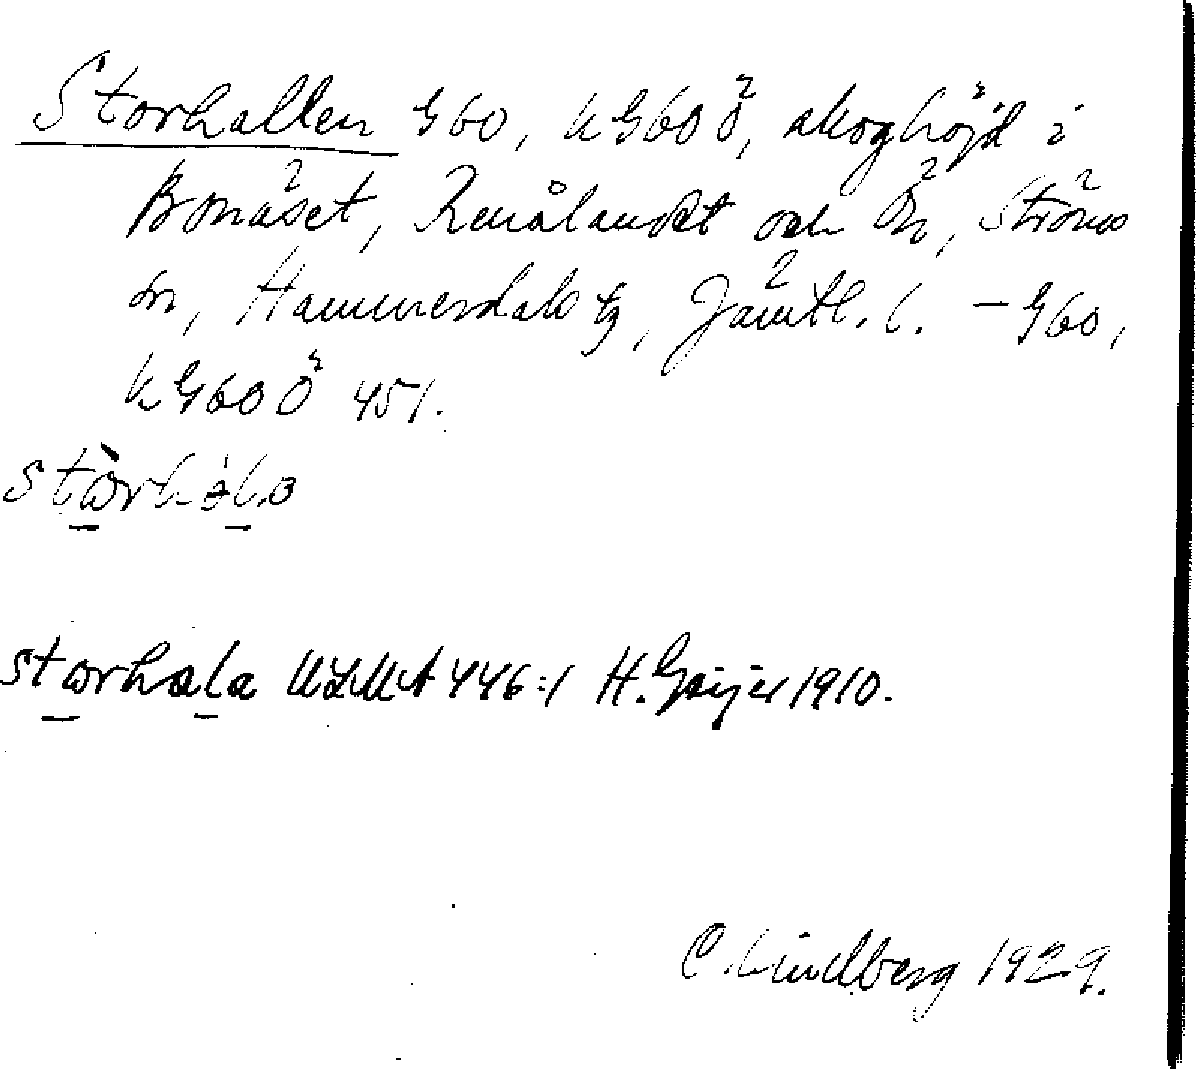 Storhallen G60, kG60Ö, skoghöjd i
Bonäset, Renålandet och Ön, Ströms
sn, Hammerdals tg, Jämtl. l. – G60,
kG60Ö 451.
storhala ULMA 446:1 H. Geijer 1910.
C. Lindberg 1929.